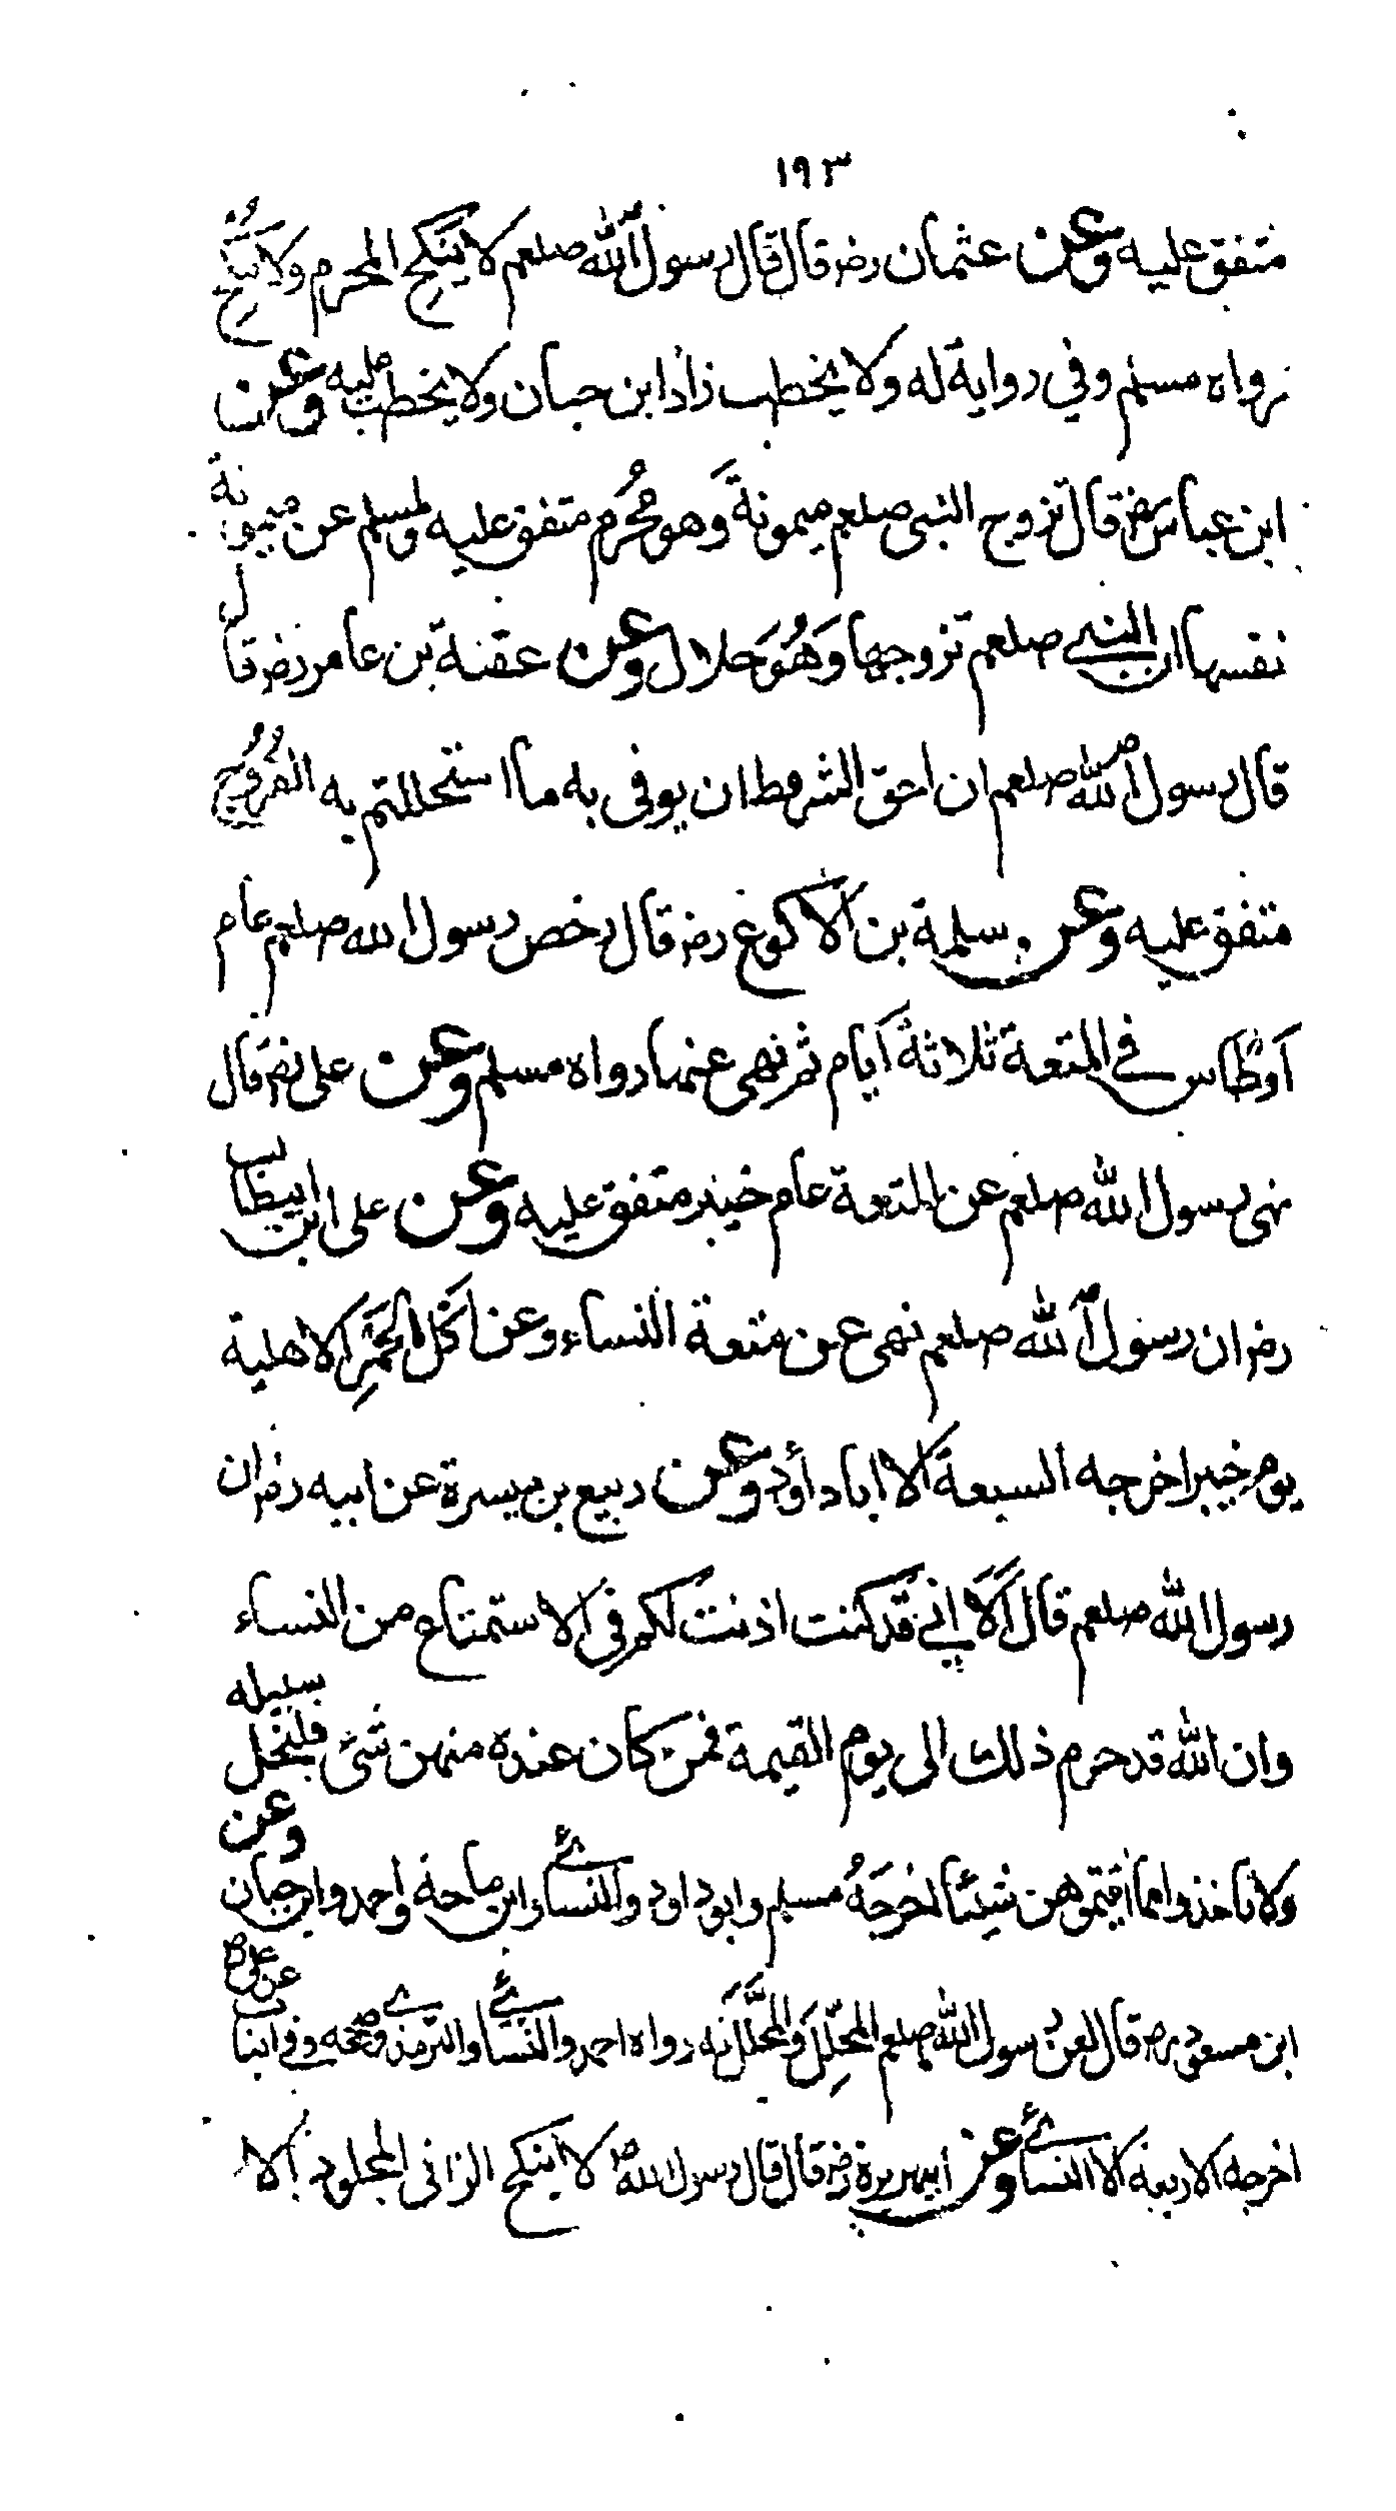 ١٩٣
متفق عليه وعن عثمان رضـ قال قال رسول الله صلعم لا ينكح المحرم ولا يُنكح
رواه مسلم وفي رواية له ولا يخطب زاد ابن حبان ولا يخطب عليه وعن
ابن عباس رضـ قال تزوج النبى صلعم ميمونةَ وهو مُحْرم متفق عليه ولمسلم عن ميمونة
نفسها ان النبي صلعم تزوجها وَهُوَ حَلال وعن عقبة بن عامر رضـ قال
قال رسول الله صلعم ان احق الشروط ان يوفى به ما استحللتم به الفُرُوج
متفق عليه وعن سلمة بن الاكوع رضـ قال رخص رسول الله صلعم عام
اَوطاس في المتعة ثلاثةَ اَيام ثم نهى عنها رواه مسلم وعن على رضـ قال
نهى رسول الله صلعم عن المتعة عام خيبر متفق عليه وعن على ابن ابيطالب
رضـ ان رسول الله صلعم نهى عن متعة النساء وعن اكل الحُمُرِ الاهلية
يوم خيبر اخرجه السبعة الا ابا داود وعن ربيع بن ميسرة عن ابيه رضـ ان
رسول الله صلعم قال اَلا اني قد كنت اذنت لكم في الاستمتاع من النساء
وان الله قد حرم ذلك الى يوم القيمة فمن كان عنده منهن شئ فليخل سبيله
ولا تاخذوا مما اتيتموهن شيئا اخرجَهُ مسلم وابو داود والنسائي وابن ماجة واحمد وابن حبان وعن
ابن مسعود رضـ قال لعن رسول الله صلعم المحلِّلَ والمحلَّلَ له رواه احمد والنسائي والترمذي وصححه وفي الباب عن علي
اخرجه الاربعة الا النسائي وعن ابيهريرة رضـ قال قال رسول الله صـ لا ينكح الزانى المجلود الا